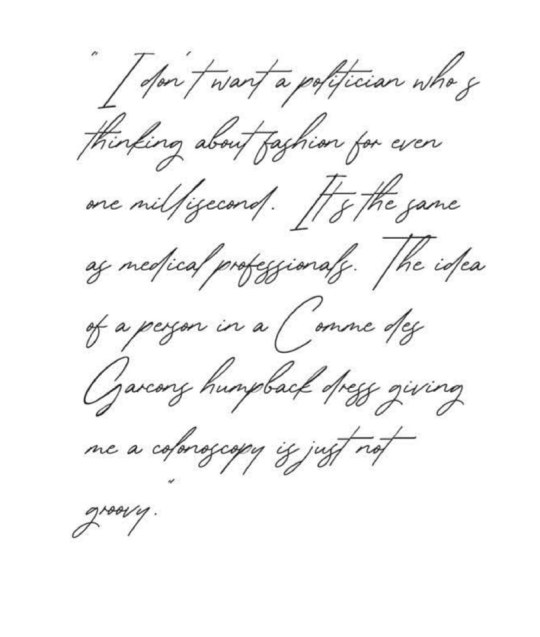 "I don't want a politician who's
thinking about fashion for even
one millisecond. It's the same
as medical professionals. The idea
of a person in a Comme des
Garcons humpback dress giving
me a colonoscopy is just not
groovy."